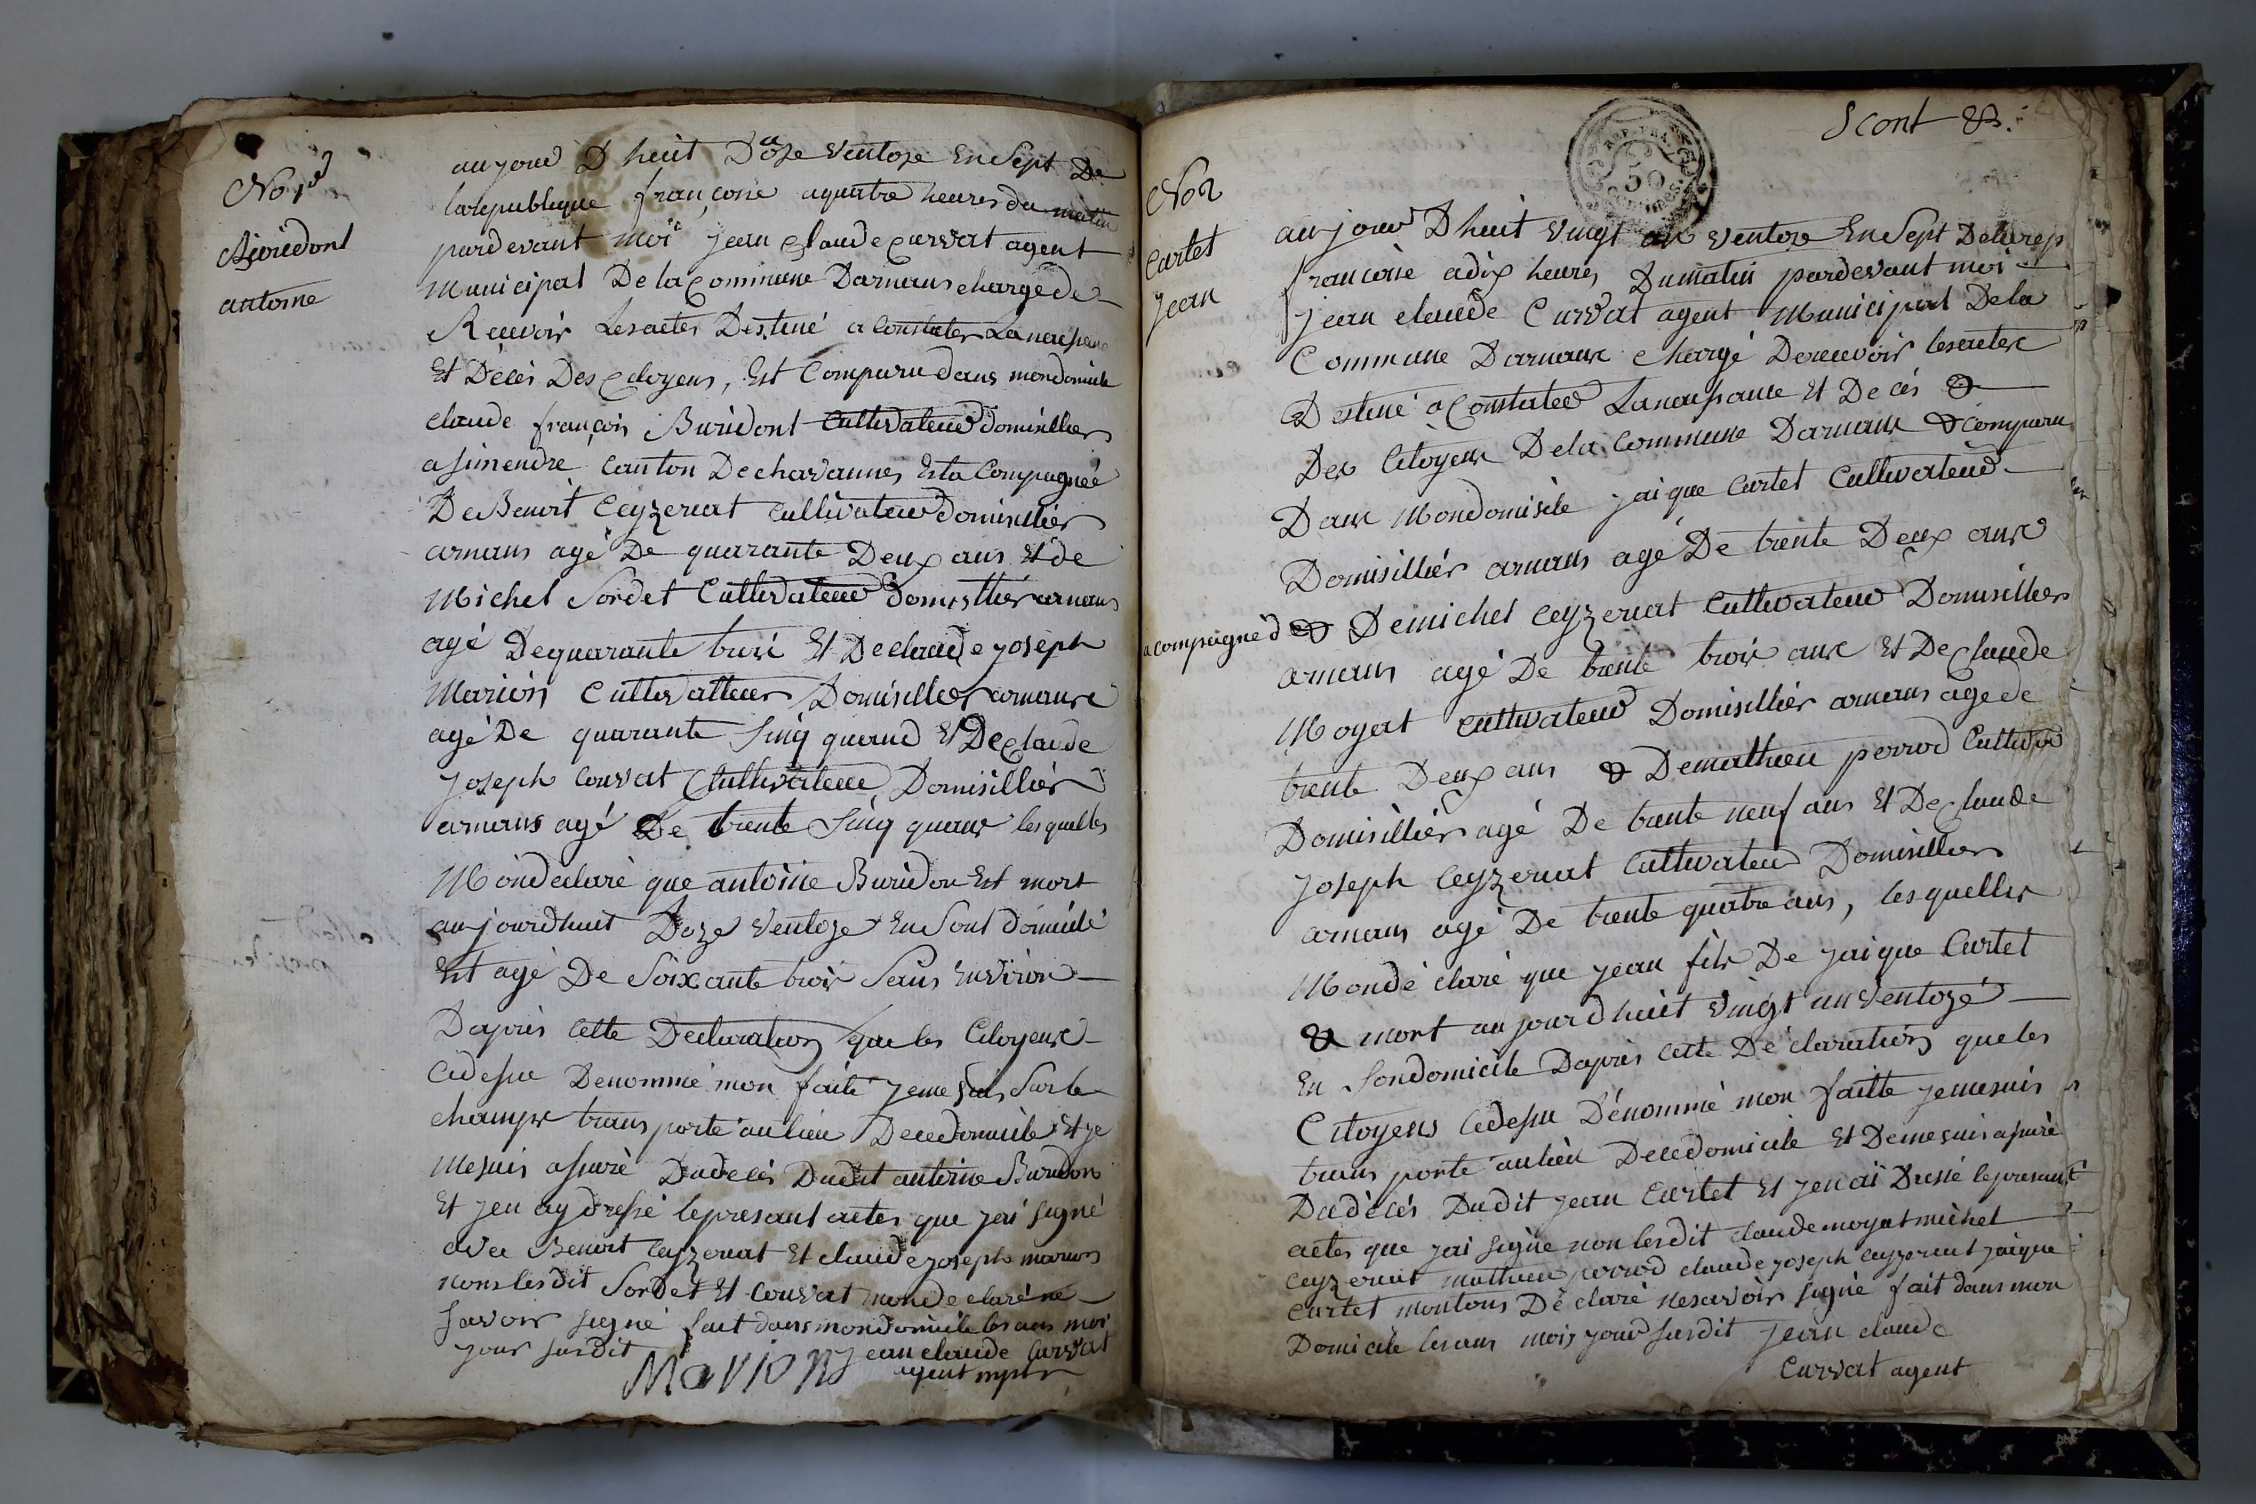 No 1er
Buridont
antoine
aujour D huit Doze ventoze En Sept De
larepublique françoise aquatre heures du matin
pardevant moi jean claude curvat agent
Municipal De la Commune Darnans chargé de
Recevoir Lesactes Destiné a constater La naissance
Et Décès Des Citoyens, Est Comparu dans mondomicile
claude françois Buridont Cultivateur domisillier
a simendre canton De chavannes Esta Compagnéé
De Benoit Ceyzeriat cultivateur domisillier
arnans agé De quarante Deux ans Et de
Michel Sordet Cultivateur Domisillier arnans
agé Dequarante troi Et De claude joseph
Marion Cultivatteur Domisillier arnans
agé De quarante Sinq quand Et De Claude
joseph Convat Cultivateur Domisillier
arnans agé De trente Sinq quans lesquelles
Mondeclaré que antoine Buridon Est mort
aujourdhuit Doze ventoze En Sont domicilé
Est agé De Soixante trois Sans Environ
Daprès cette Declaration que les Citoyens
Cidessu Denommé mon faite jeme suis Surle
champs trans porté aulieu Decedomicile Et je
Mesuis assuré Dudecés Dudit antoine Buridon
Et jen ay dressé lepresant actes que jai signé
avec Benoit Ceyzeriat Et claude joseph marion
nons lesdit Sordet Et Convat monde claré ne
savoir signé fait dans mondomicile les ans moi
jour susdit jean claude Curvat
Marion agent mpal
Scont &.
REP. FRA.
50
No 2
Cartet
Jean
aujour D huit vingt un ventoze En Sept Delarep
francoise adix heures Dumatin pardevant moi
jean claude Curvat agent Municipal Dela
Commune Darnans chargé Derecevoir lesactes
Destiné a Constater Lanaissance Et Decés &
Des Citoyens Dela Commune Darnans & comparu
Dans Mondomisile jaique Cartet Cultivateur
Domisillier arnans agé De trente Deux ans
acompagné d & Demichel ceyzeriat Cultivateur Domisillier
arnans agé De trente trois ans Et De Claude
Moyat cultivateur Domisillier arnans age de
trente Deux ans & Demathieu perrod Cultivr
Domisillier agé De trente neuf ans Et De Claude
joseph Ceyzeriat Cultivateu Domisillier
arnans agé De trente quatre ans, lesquelles
Mondé claré que jean fils De jaique Cartet
& mort aujourdhuit vingt unventozé
En Sondomicile Daprès cette Dé claration queles
Citoyens cidessu Dénommé mon faitte jemesuis
trans porté aulieu Decedomicile Et Demesuis assuré
Dudècés Dudit jean Cartet Et jenai Dressé lepresant
actes que jai signe non lesdit claude moyat michel
ceyzeriat mathieu perrod claude joseph ceyzeriat jaique
cartet montous Dé claré nesavoir signé fait dans mon
Domicile lesans mois jour susdit jean claude
Curvat agent